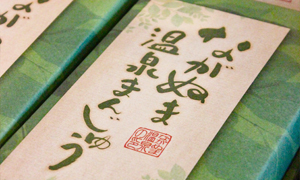 ながぬま
温泉まんじゅう